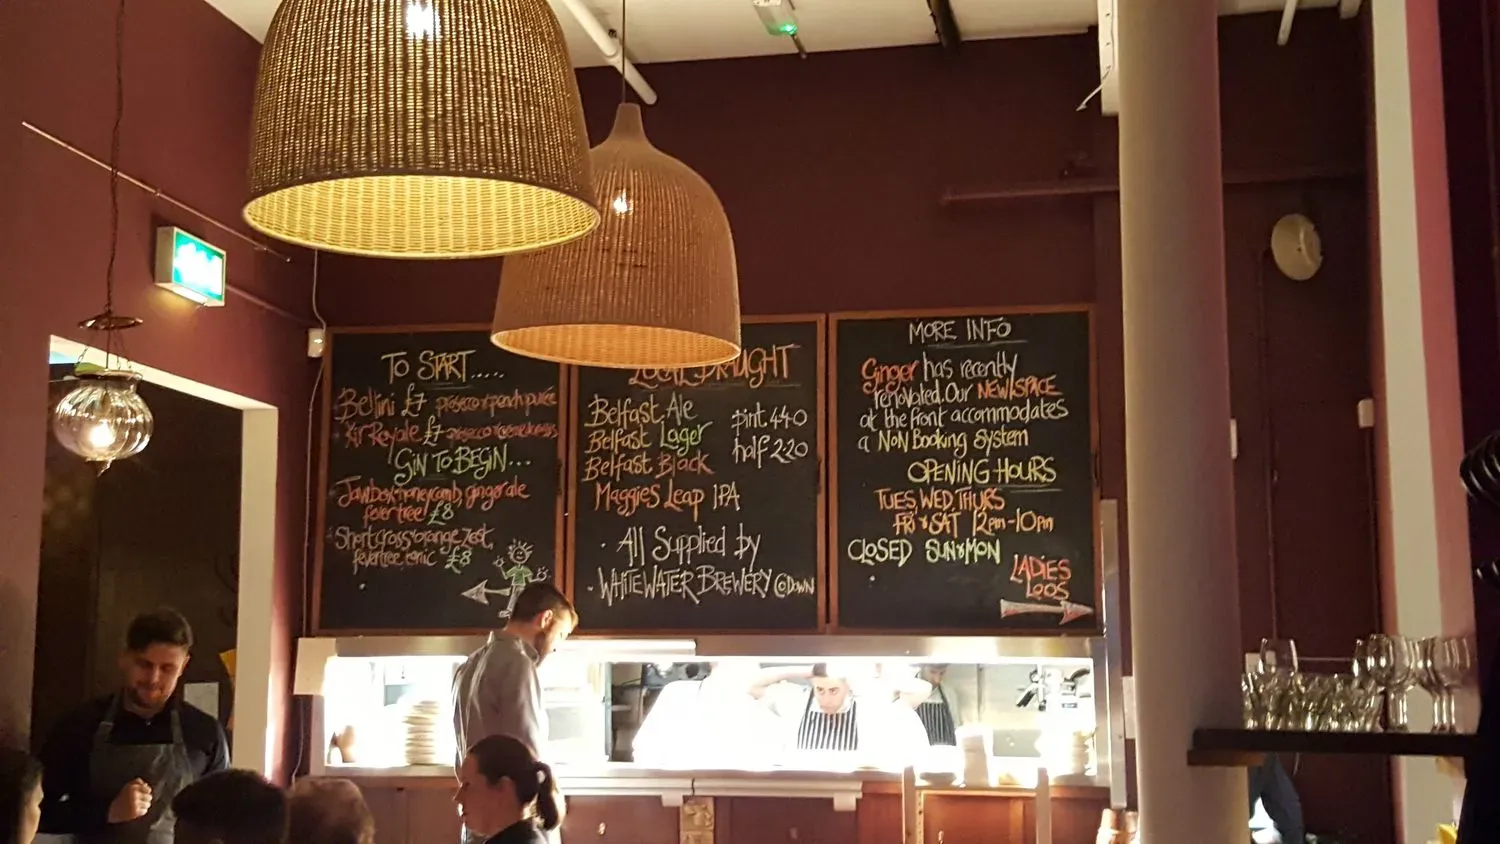 TO START.....
Bellini £7 prosecco & peach purée
Kir Royale £7 prosecco & creme cassis
GIN TO BEGIN...
Jawbox, honeycomb, ginger ale
fevertree £8
Shortcross & orange zest,
fevertree tonic £8
LOCAL DRAUGHT
Belfast Ale
Belfast Lager
Belfast Black
Maggies Leap IPA
pint 4.40
half 2.20
· All Supplied by
· WHITEWATER BREWERY Co DOWN
MORE INFO
Ginger has recently
renovated. Our NEW SPACE
at the front accommodates
a NON Booking System
OPENING HOURS
TUES, WED, THURS
FRI & SAT 12pm-10pm
CLOSED SUN & MON
LADIES
LOOS